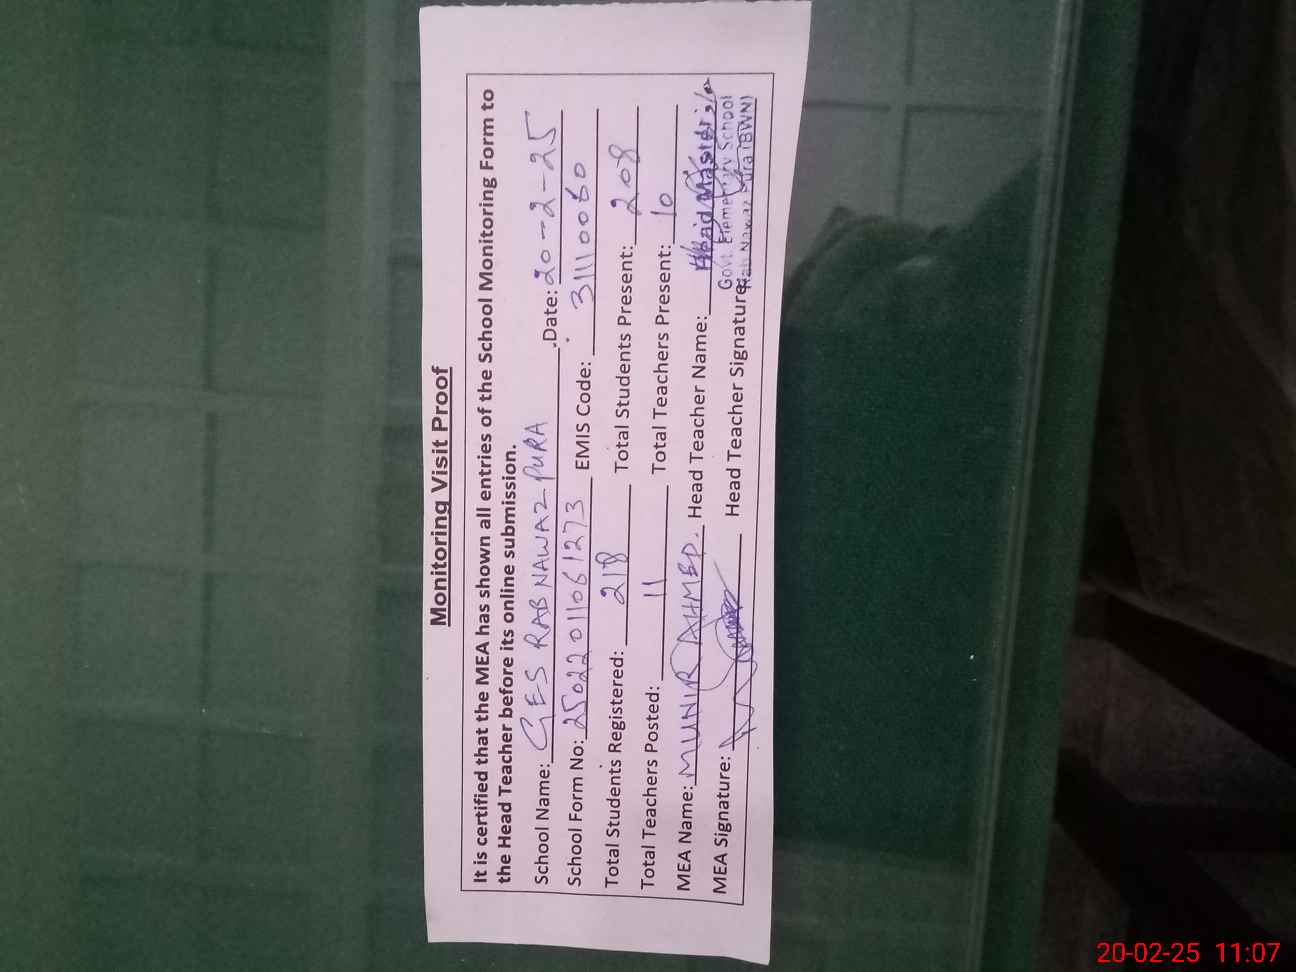 Monitoring Visit Proof
It is certified that the MEA has shown all entries of the School Monitoring Form to
the Head Teacher before its online submission.
School Name: GES RAB NAWAZ PURA .Date: 20-2-25
School Form No: 25022011061273 EMIS Code: 31110060
Total Students Registered: 218 Total Students Present: 208
Total Teachers Posted: 11 Total Teachers Present: 10
MEA Name: MUNIR AHMED. Head Teacher Name:
Head Master
Govt. Elementary School
Rab Nawaz Pura (BWN)
MEA Signature: Head Teacher Signature:
20-02-25 11:07